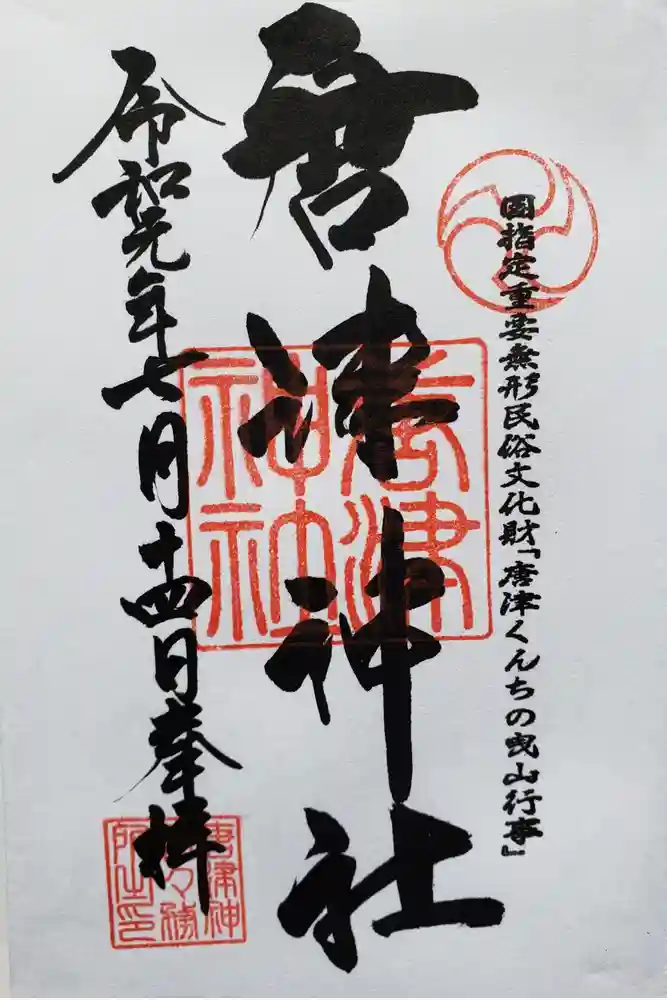 国指定重要無形民俗文化財「唐津くんちの曳山行事」
唐津神社
唐津
神社
令和元年七月十四日奉拝
唐津神